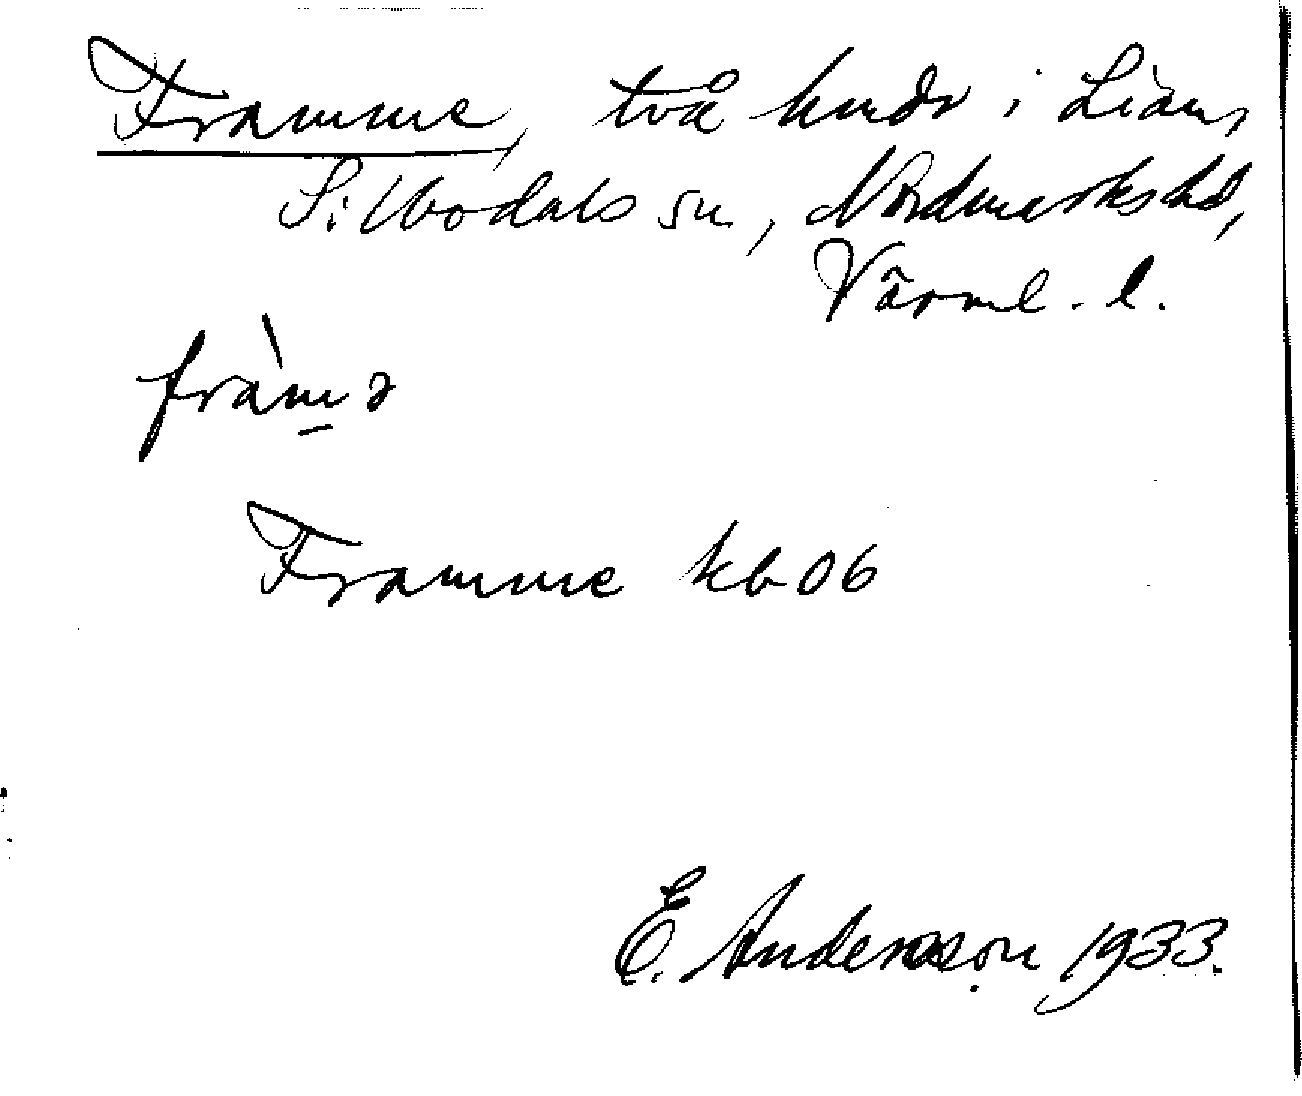 Framme, två hmdr i Liàn,
Silbodals sn, Nordmarks hd,
Värml. l.
fràmə
Framme kb 06
E. Andersson 1933.